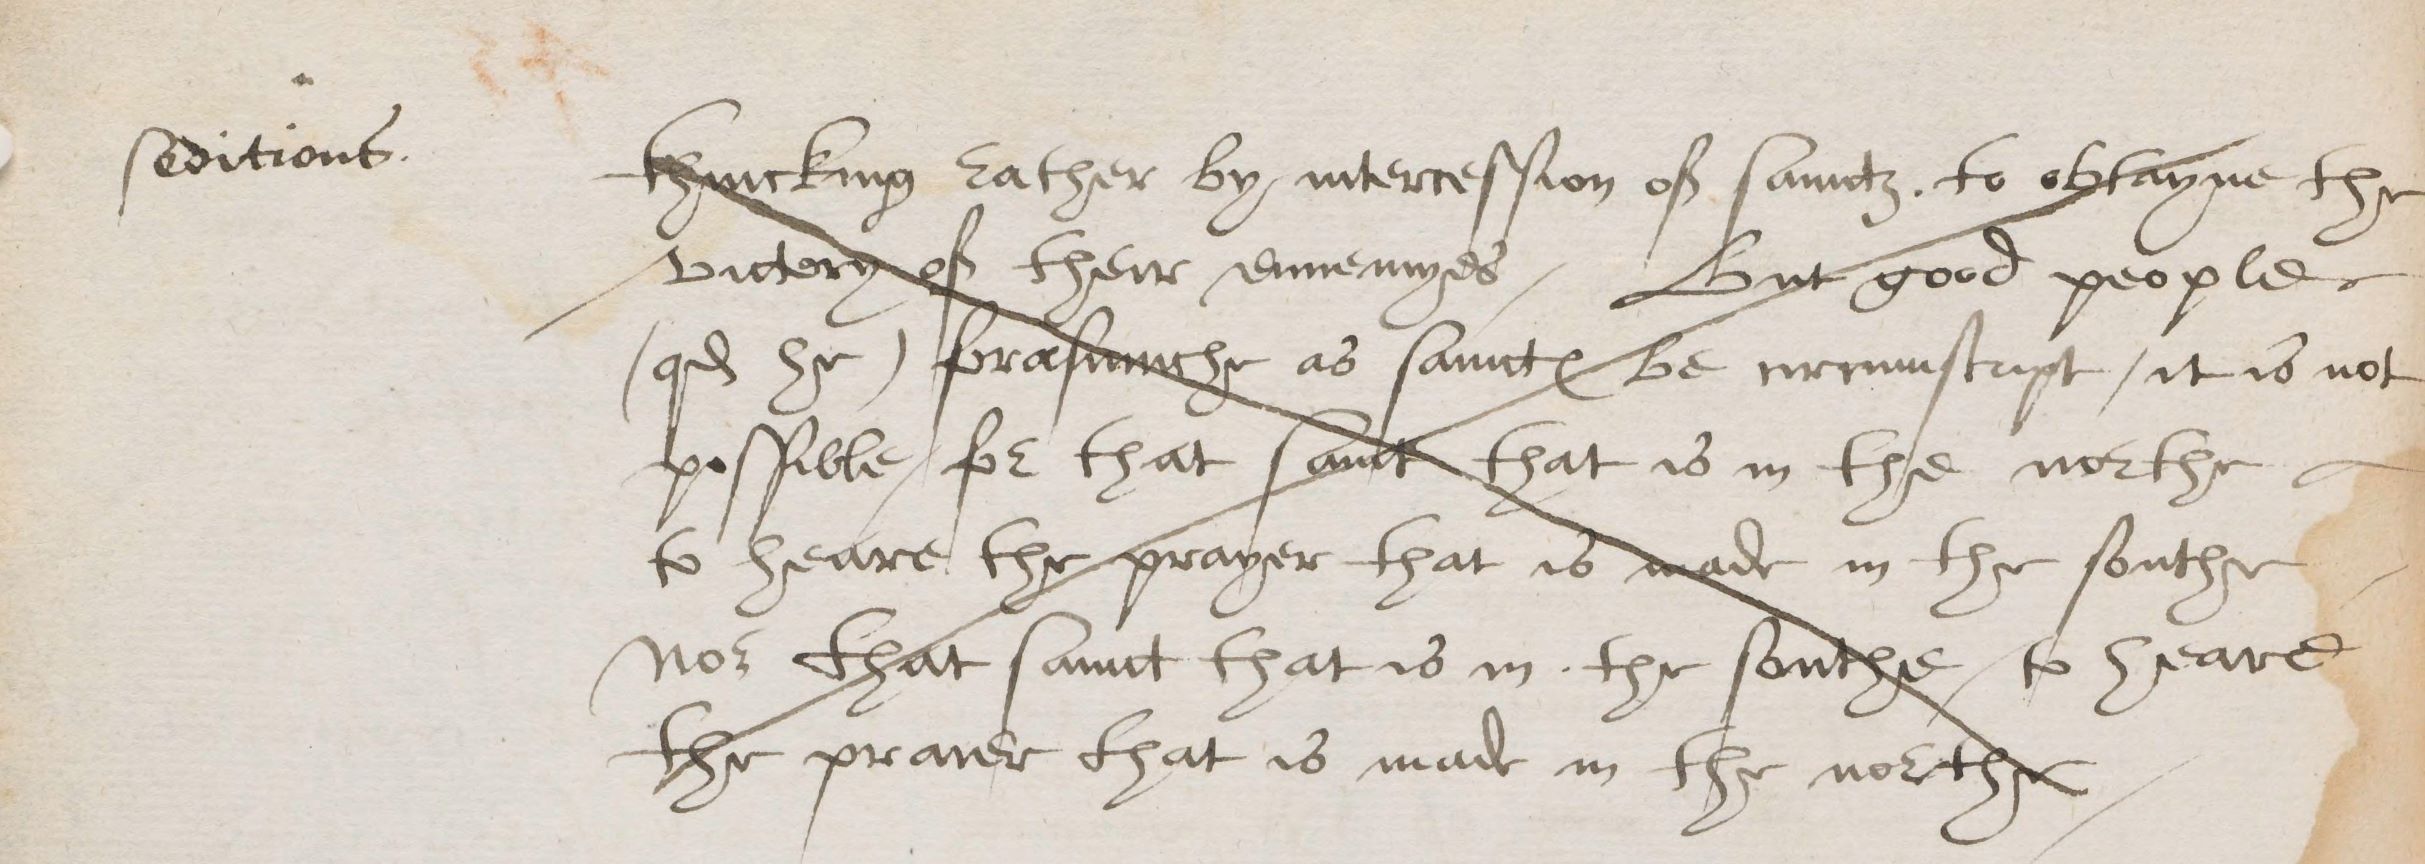 seditious.
thincking rather by intercession of sainctz. to obtayne the
victory of their ennemyes / But good people
(qd he) forasmuche as sainctes be circumscript / it is not
possible / for that sainct that is in the northe
to heare the prayer that is made in the southe /
Nor that sainct that is in the southe / to heare
the praier that is made in the northe /